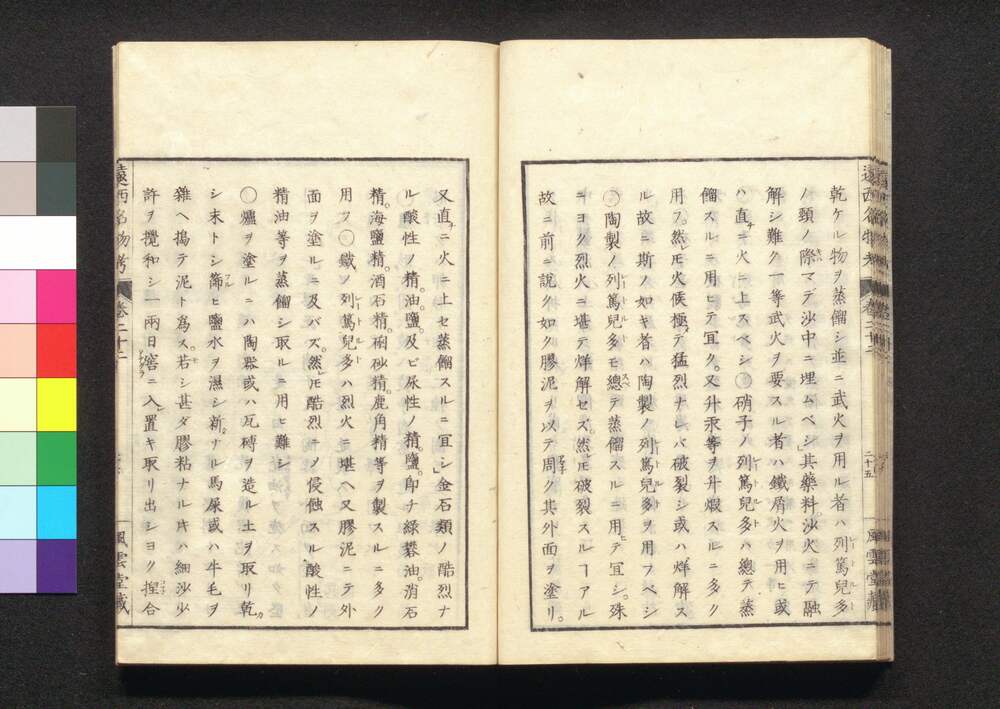 乾ケル物ヲ蒸餾シ並ニ武火ヲ用ル者ハ列篤兒多
ノ頸ノ際マデ沙中ニ埋ムベシ其藥料沙火ニテ融
解シ難ク一等武火ヲ要スル者ハ鐵屑火ヲ用ヒ或
ハ直ニ火ニ上スベシ○硝子ノ列篤兒多ハ總テ蒸
餾スルニ用ヒテ宜ク又升汞等ヲ升煆スルニ多ク
用フ然𪜈火候極テ猛烈ナレバ破裂シ或ハ烊解ス
ル故ニ斯ノ如キ者ハ陶製ノ列篤兒多ヲ用フベシ
○陶製ノ列篤兒多モ總テ蒸餾スルニ用ヒテ宜シ殊
ニヨク烈火ニ堪テ烊解セズ然𪜈破裂スルヿアル
故ニ前ニ說ク如ク膠泥ヲ以テ周ク其外面ヲ塗リ
遠西名物考 卷二十二 二十五 風雲堂藏
又直ニ火ニ上セ蒸餾スルニ宜シ金石類ノ酷烈ナ
ル酸性ノ精油鹽及ビ尿性ノ精鹽即ナ綠礬油消石
精海鹽精酒石精硇砂精鹿角精等ヲ製スルニ多ク
用フ○鐵ノ列篤兒多ハ烈火ニ堪ヘ又膠泥ニテ外
面ヲ塗ルニ及バズ然𪜈酷烈ニノ侵蝕スル酸性ノ
精油等ヲ蒸餾シ取ルニ用ヒ難シ
○爐ヲ塗ルニハ陶器或ハ瓦磚ヲ造ル土ヲ取リ乾
シ末トシ篩ヒ鹽水ヲ濕シ新ナル馬屎或ハ牛毛ヲ
雜ヘ搗テ泥ト爲ス若シ甚ダ膠粘ナル𪜈ハ細沙少
許ヲ攪和シ一兩日窖ニ入置キ取リ出シヨク捏合
遠西名物考 卷二十二 風雲堂藏